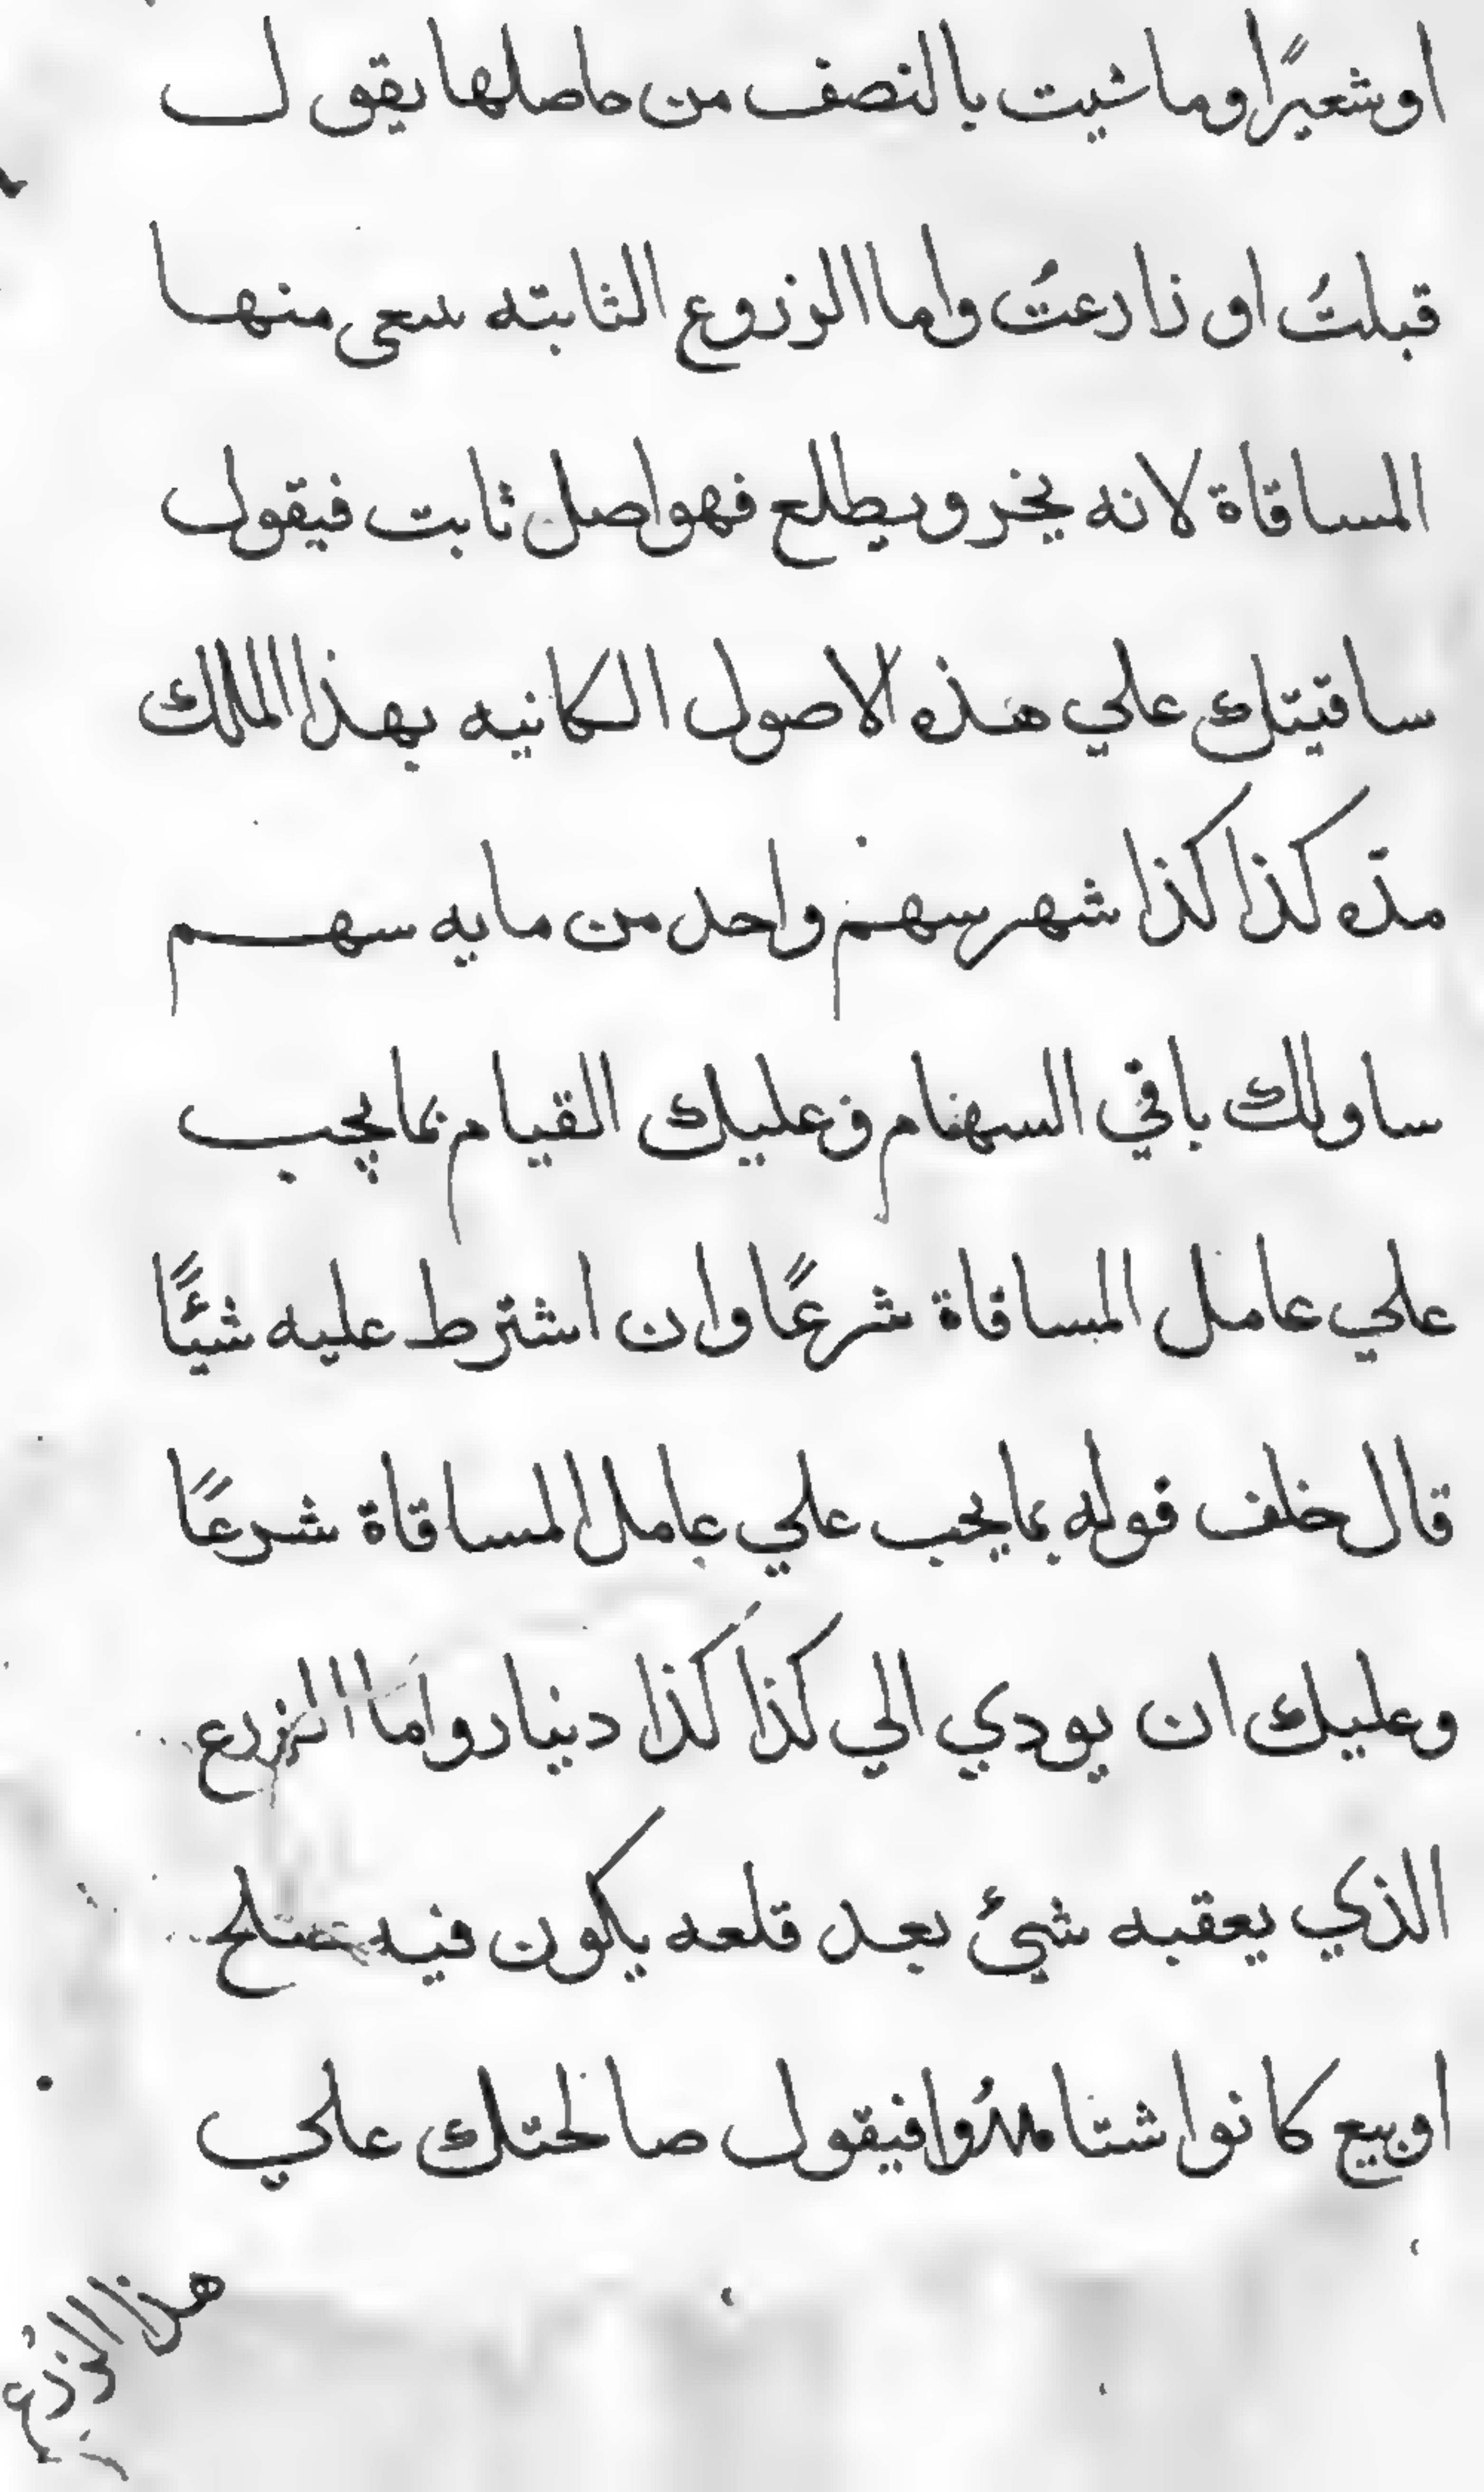 اوشعيرًا وما شيت بالنصف من حاصلها يقول
قبلتُ او زارعتُ واما الزروع الثابته سعى منها
المساقاة لانه يخر ويطلع فهو اصل ثابت فيقول
ساقيتك علي هذه الاصول الكانيه بهذا الملك
مدّه كذا كذا شهر سهم واحد من مايه سهم
ساولك باقي السهام وعليك القيام بما يجب
علي عامل المساقاة شرعًا وان اشترط عليه شيئًا
قال خلف قوله بما يجب علي عامل المساقاة شرعًا
وعليك ان يودي الي كذا كذا دينار واما الزرع
الذي يعقبه شيئ بعد قلعه يكون فيه صلح
او بيع كانوا شتا فيقول صالحتك علي
هذا الزرع